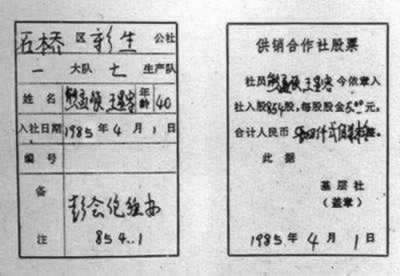 石桥 区 新生 公社
一 大队 七 生产队
姓名 年龄 40
入社日期 1985年4月1日
编号
备注
85 4..1
供销合作社股票
社员 今依章入
社入股854股,每股股金5.00元,
合计人民币
此据
基层社
(盖章)
1985年4月1日